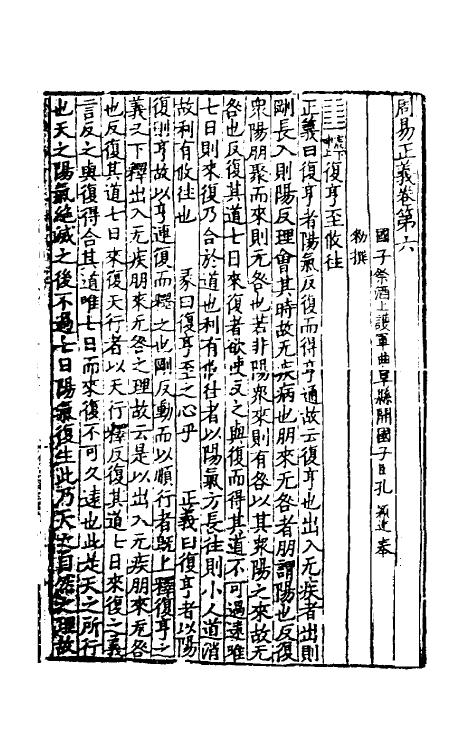 周易正義卷第六
國子祭酒上護軍曲阜縣開國子臣孔穎達奉
勑撰
震下坤上復亨至攸往
正義曰復亨者陽氣反復而得亨通故云復亨也出入无疾者出則
剛長入則陽反理會其時故无疾病也朋來无咎者朋謂陽也反復
衆陽朋聚而來則无咎也若非陽衆來則有咎以其衆陽之來故无
咎也反復其道七日來復者欲使反之與復而得其道不可過遠唯
七日則來復乃合於道也利有攸往者以陽氣方長往則小人道消
故利有攸往也 彖曰復亨至之心乎 正義曰復亨者以陽
復則亨故以亨連復而釋之也剛反動而以順行者旣上釋復亨之
義又下釋出入无疾朋來无咎之理故云是以出入无疾朋來无咎
也反復其道七日來復天行者以天行釋反復其道七日來復之義
言反之與復得合其道唯七日而來復不可久遠也此是天之所行
也天之陽氣絶滅之後不過七日陽氣復生此乃天之自然之理故